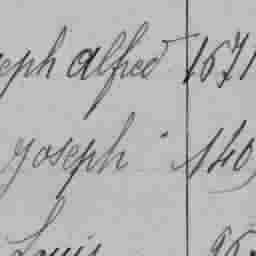 eph alfred 1671
Joseph " 140
Louis 96